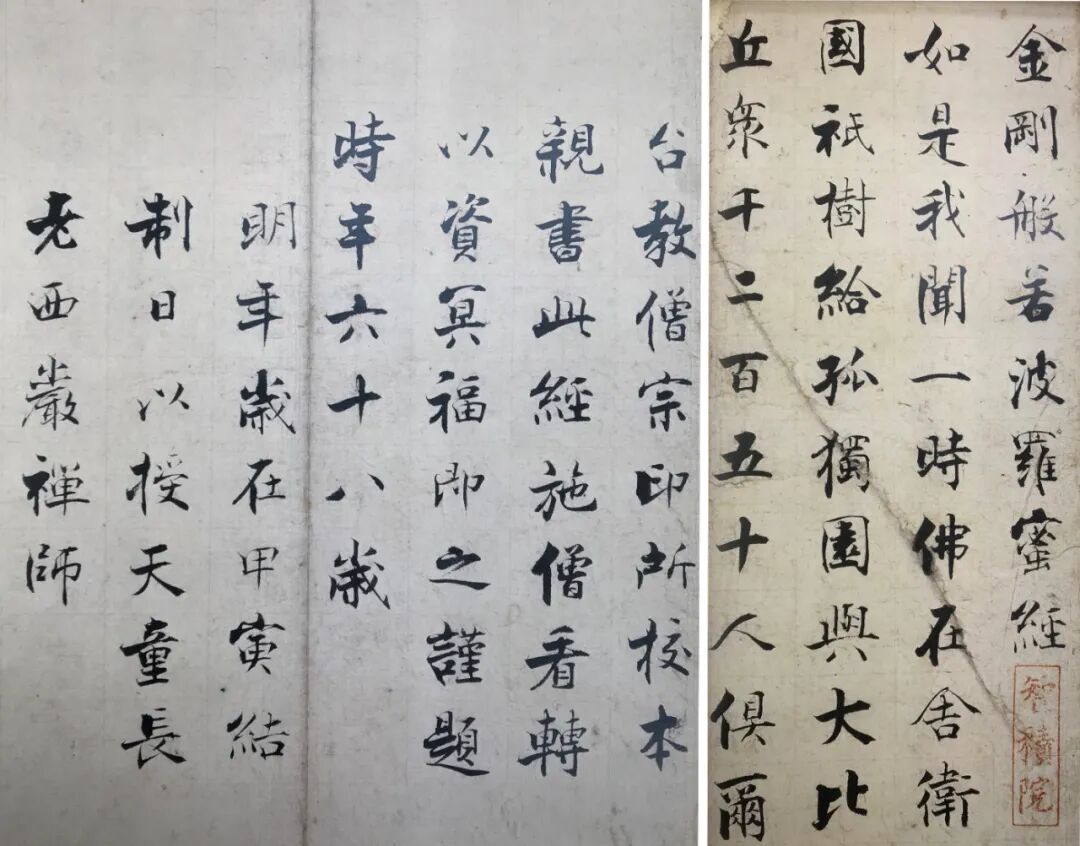 金剛般若波羅蜜經
智積院
如是我聞一時佛在舍衛
國祇樹給孤獨園與大比
丘衆千二百五十人俱爾
台教僧宗印所校本
親書此經施僧看轉
以資冥福即之謹題
時年六十八歲
明年歲在甲寅結
制日以授天童長
老西巖禪師